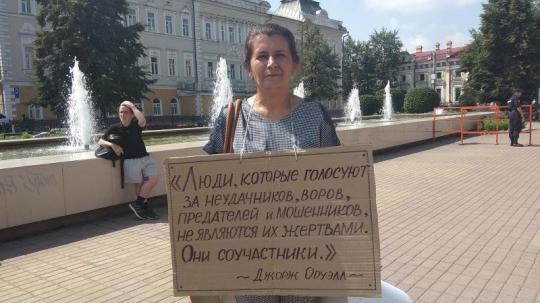 «Люди, которые голосуют
за неудачников, воров,
предателей и мошенников,
не являются их жертвами.
Они соучастники.»
~ Джорж Оруэлл ~